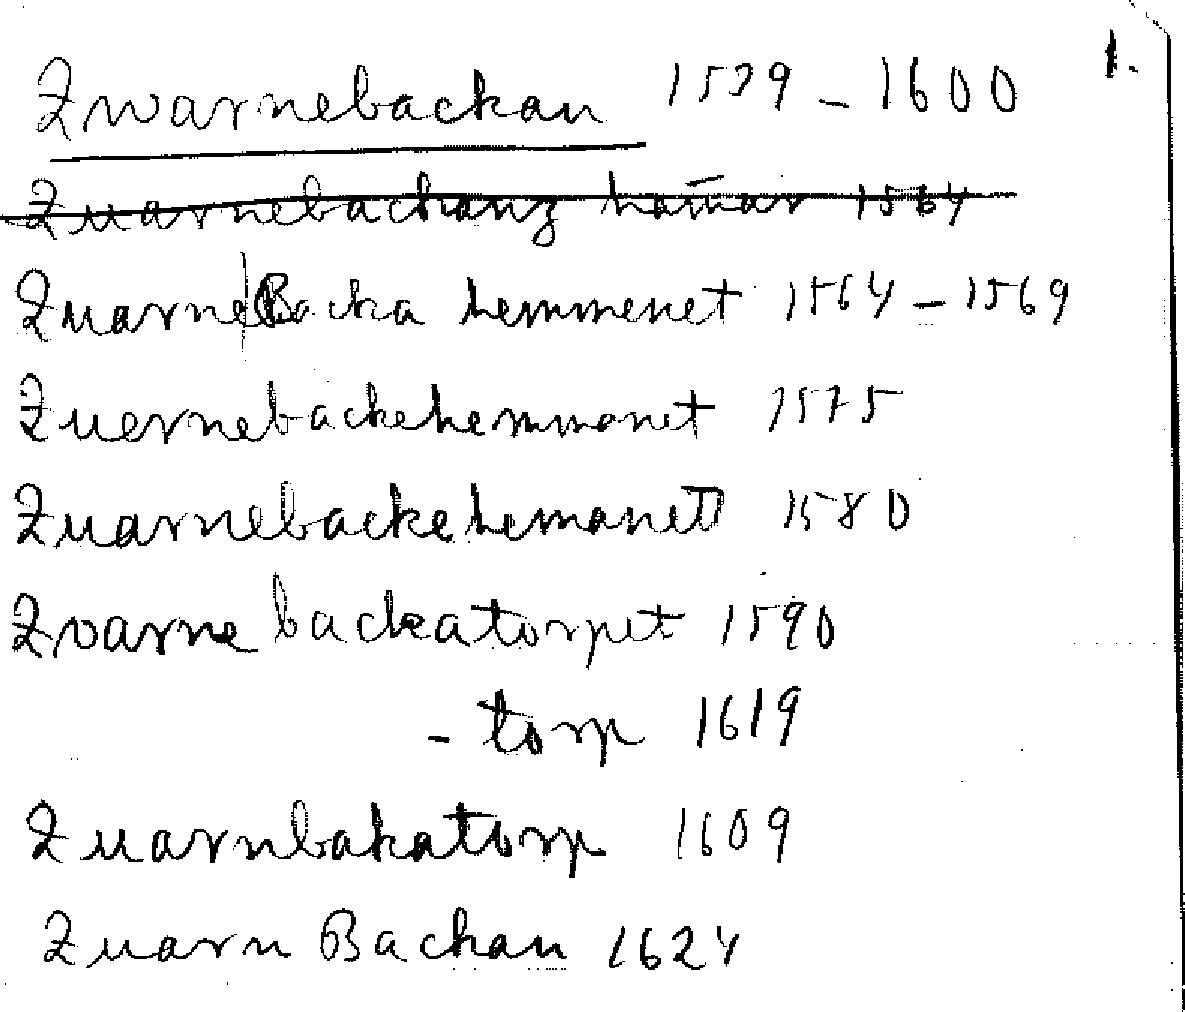 Qwarnebackan 1539 – 1600 1.
Quarnebackanz hām̄ar 1564
Quarne|Backa hemmenet 1564 – 1569
Quernebackehemmanet 1575
Quarnebackehemanett 1580
Qvarnebackatorpet 1590
- torp 1619
Quarnbakatorp 1609
Quarn Backan 1624